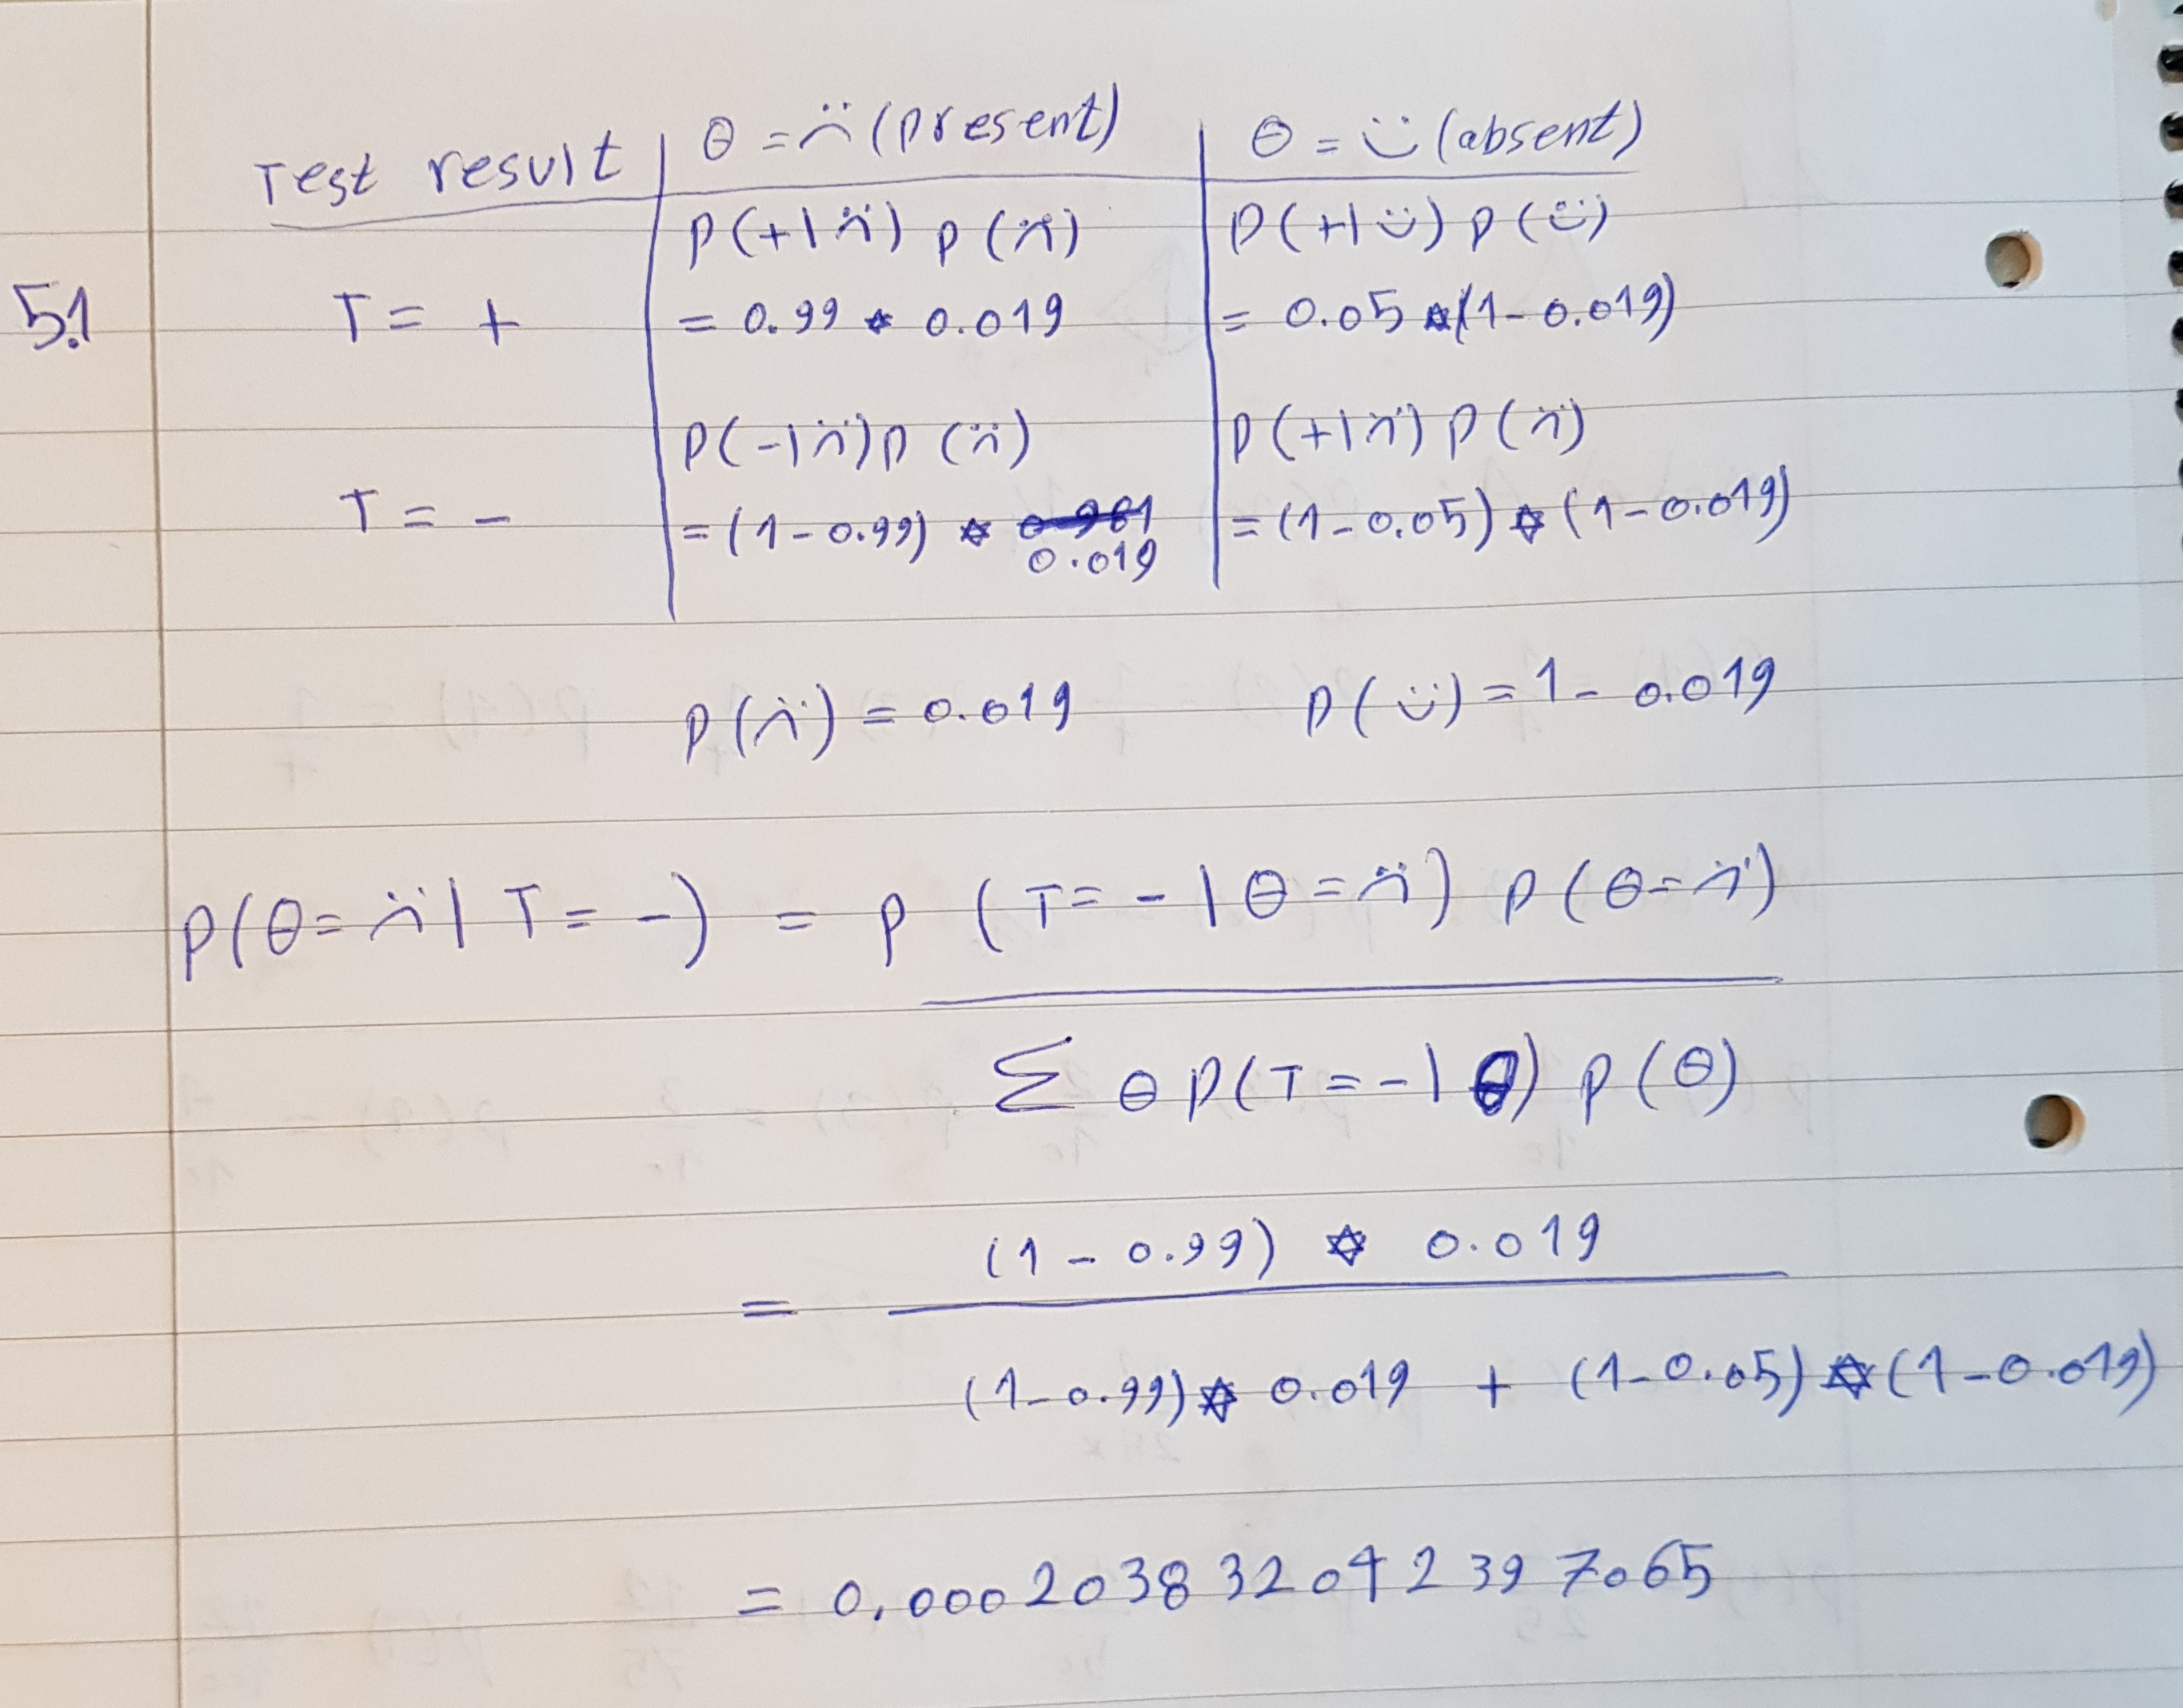 Test result | θ = ☹ (present) | θ = ☺ (absent)
P(+|☹) P(☹) | P(+|☺) P(☺)
5.1 T = + | = 0.99 * 0.019 | = 0.05 * (1-0.019)
P(-|☹) P(☹) | P(+|☹) P(☹)
T = - | = (1-0.99) * 0.981 | = (1-0.05) * (1-0.019)
0.019
P(☹) = 0.019 P(☺) = 1 - 0.019
P(θ=☹ | T = -) = P (T = - | θ = ☹) P(θ=☹)
Σ θ P(T = - | θ) P(θ)
(1 - 0.99) * 0.019
=
(1-0.99) * 0.019 + (1-0.05) * (1-0.019)
= 0,000203832042397065